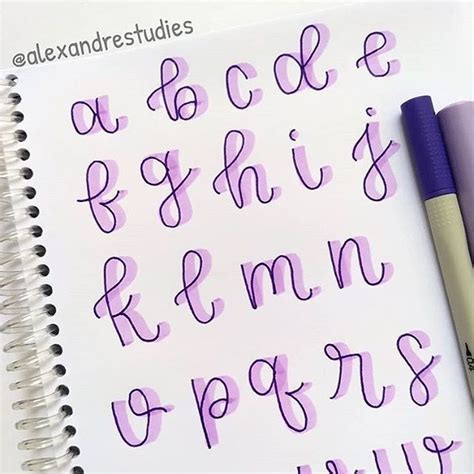 @alexandrestudies
a b c d e
f g h i j
k l m n
o p q r s